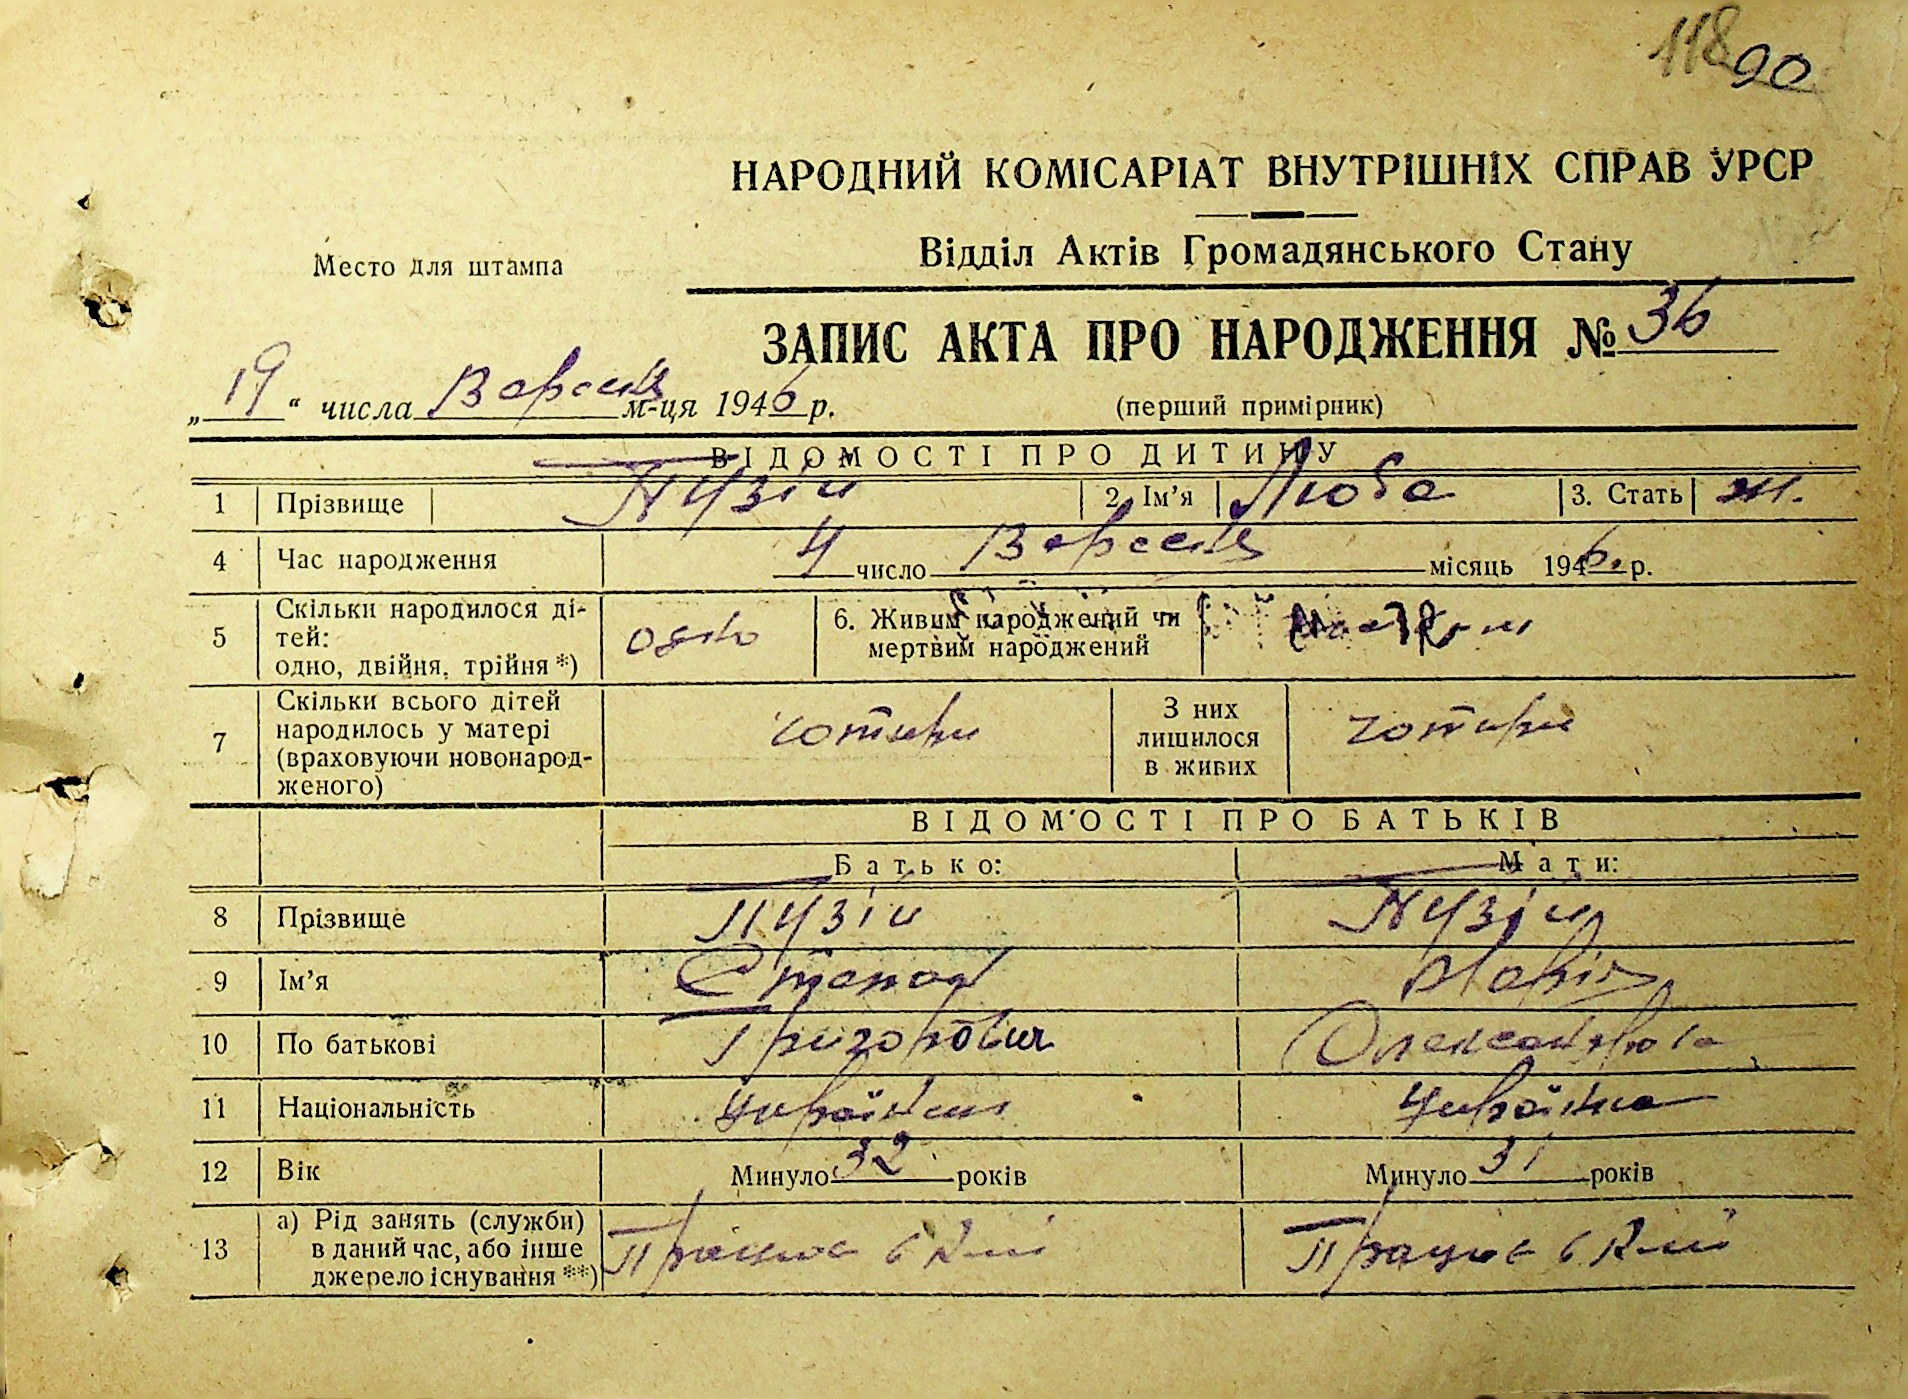 118 90
НАРОДНИЙ КОМІСАРІАТ ВНУТРІШНІХ СПРАВ УРСР
Место для штампа
Відділ Актів Громадянського Стану
ЗАПИС АКТА ПРО НАРОДЖЕННЯ № 36
„19“ числа Вересня м-ця 1946 р.
(перший примірник)
ВІДОМОСТІ ПРО ДИТИНУ
1 Прізвище Пузій 2. Ім’я Люба 3. Стать ж.
4 Час народження 4 число Вересня місяць 1946. р.
5 Скільки народилося ді-
тей:
одно, двійня, трійня *) одно
6. Живим народжений чи
мертвим народжений
7 Скільки всього дітей
народилось у матері
(враховуючи новонарод-
женого) чотири
З них
лишилося
в живих чотири
ВІДОМОСТІ ПРО БАТЬКІВ
Батько: Мати:
8 Прізвище Пузій Пузій
9 Ім’я Степан Марія
10 По батькові Григорович Олександрівна
11 Національність Українка
12 Вік Минуло 32 років Минуло 31 років
13 а) Рід занять (служби)
в даний час, або інше
джерело існування **)
Працює в Працює в